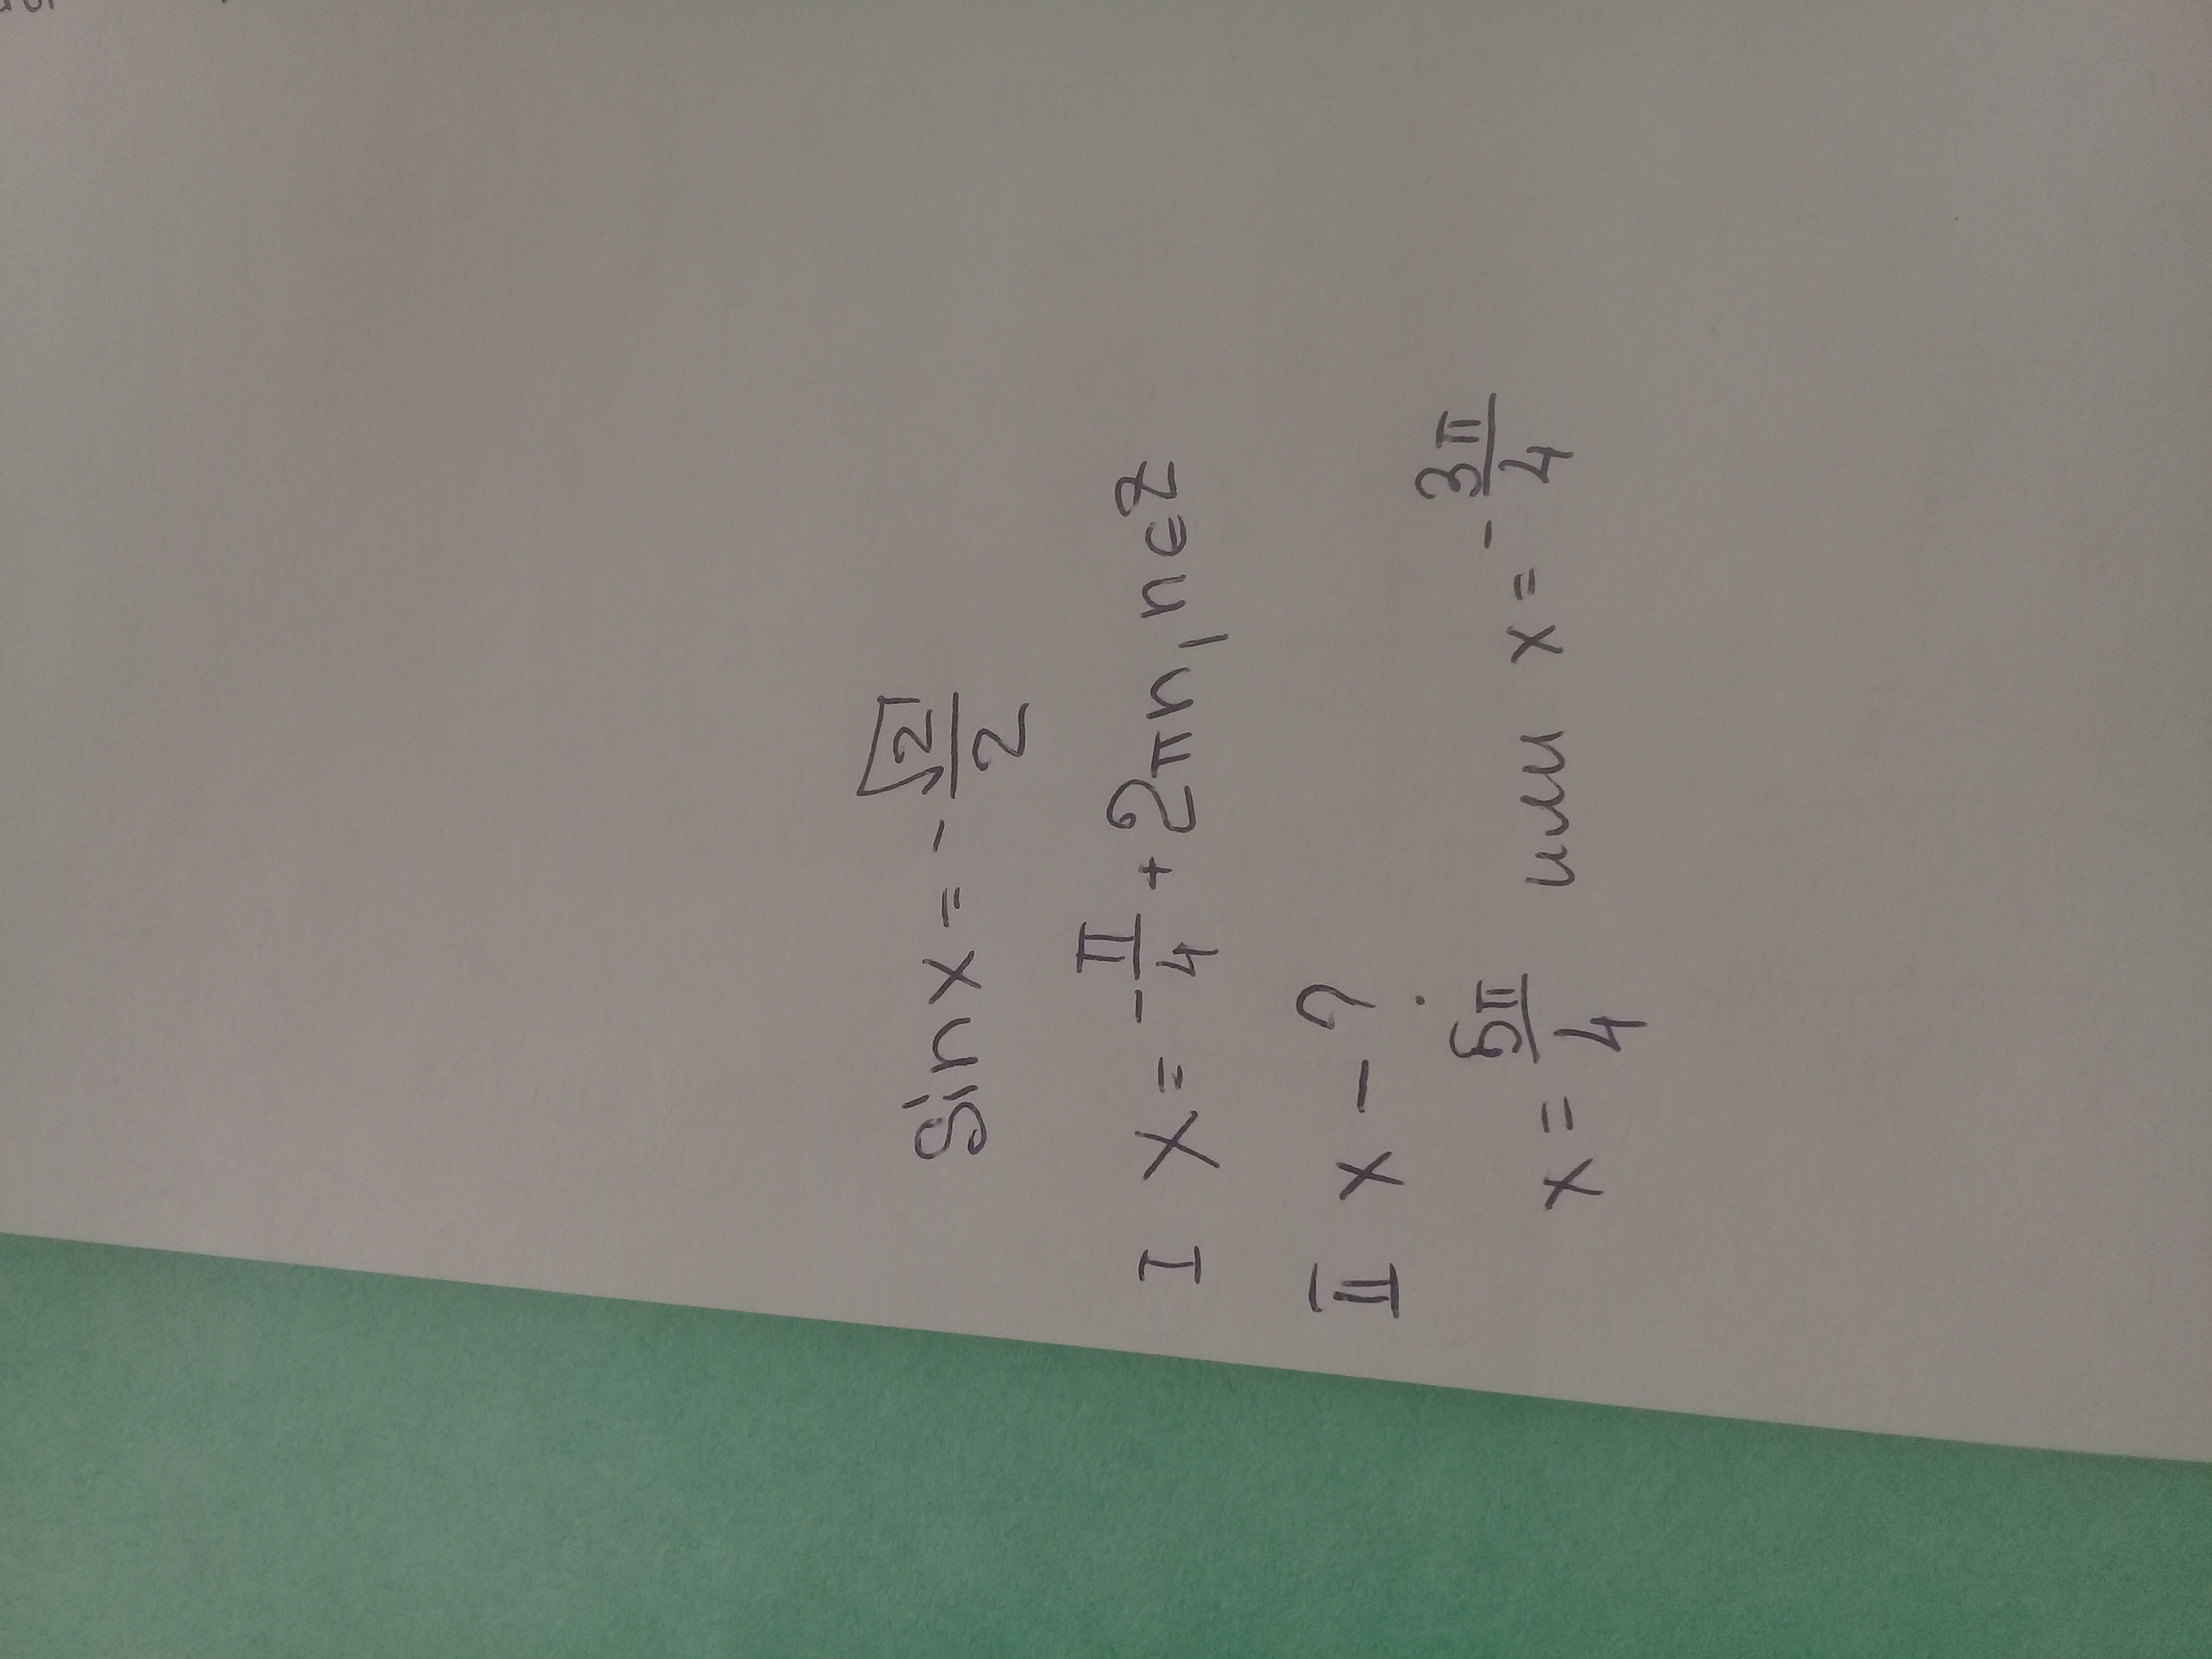 sin x = - √2/2
I x = - π/4 + 2πn, n ∈ Z
II x - ?
x = 5π/4 или x = - 3π/4